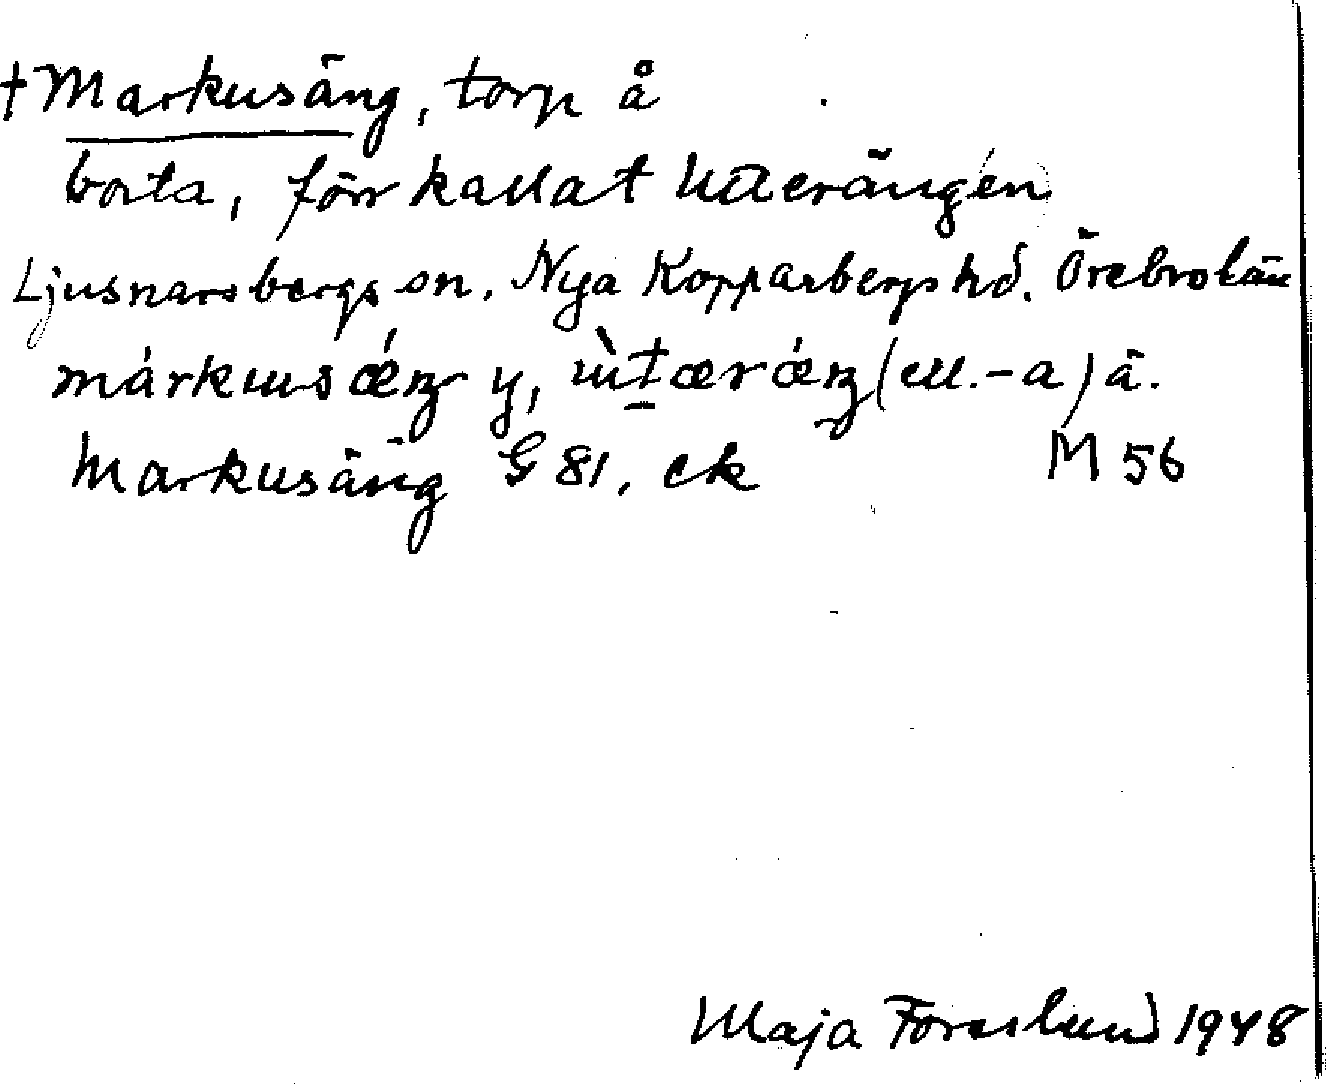 † Markusäng, torp å
borta, förr kallat Utterängen
Ljusnarsbergs sn. Nya Kopparbergs hd. Örebro län
márkusǽŋ y, (ell. -a) ä.
Markusäng G 81, ek M 56
Maja Forslund 1948